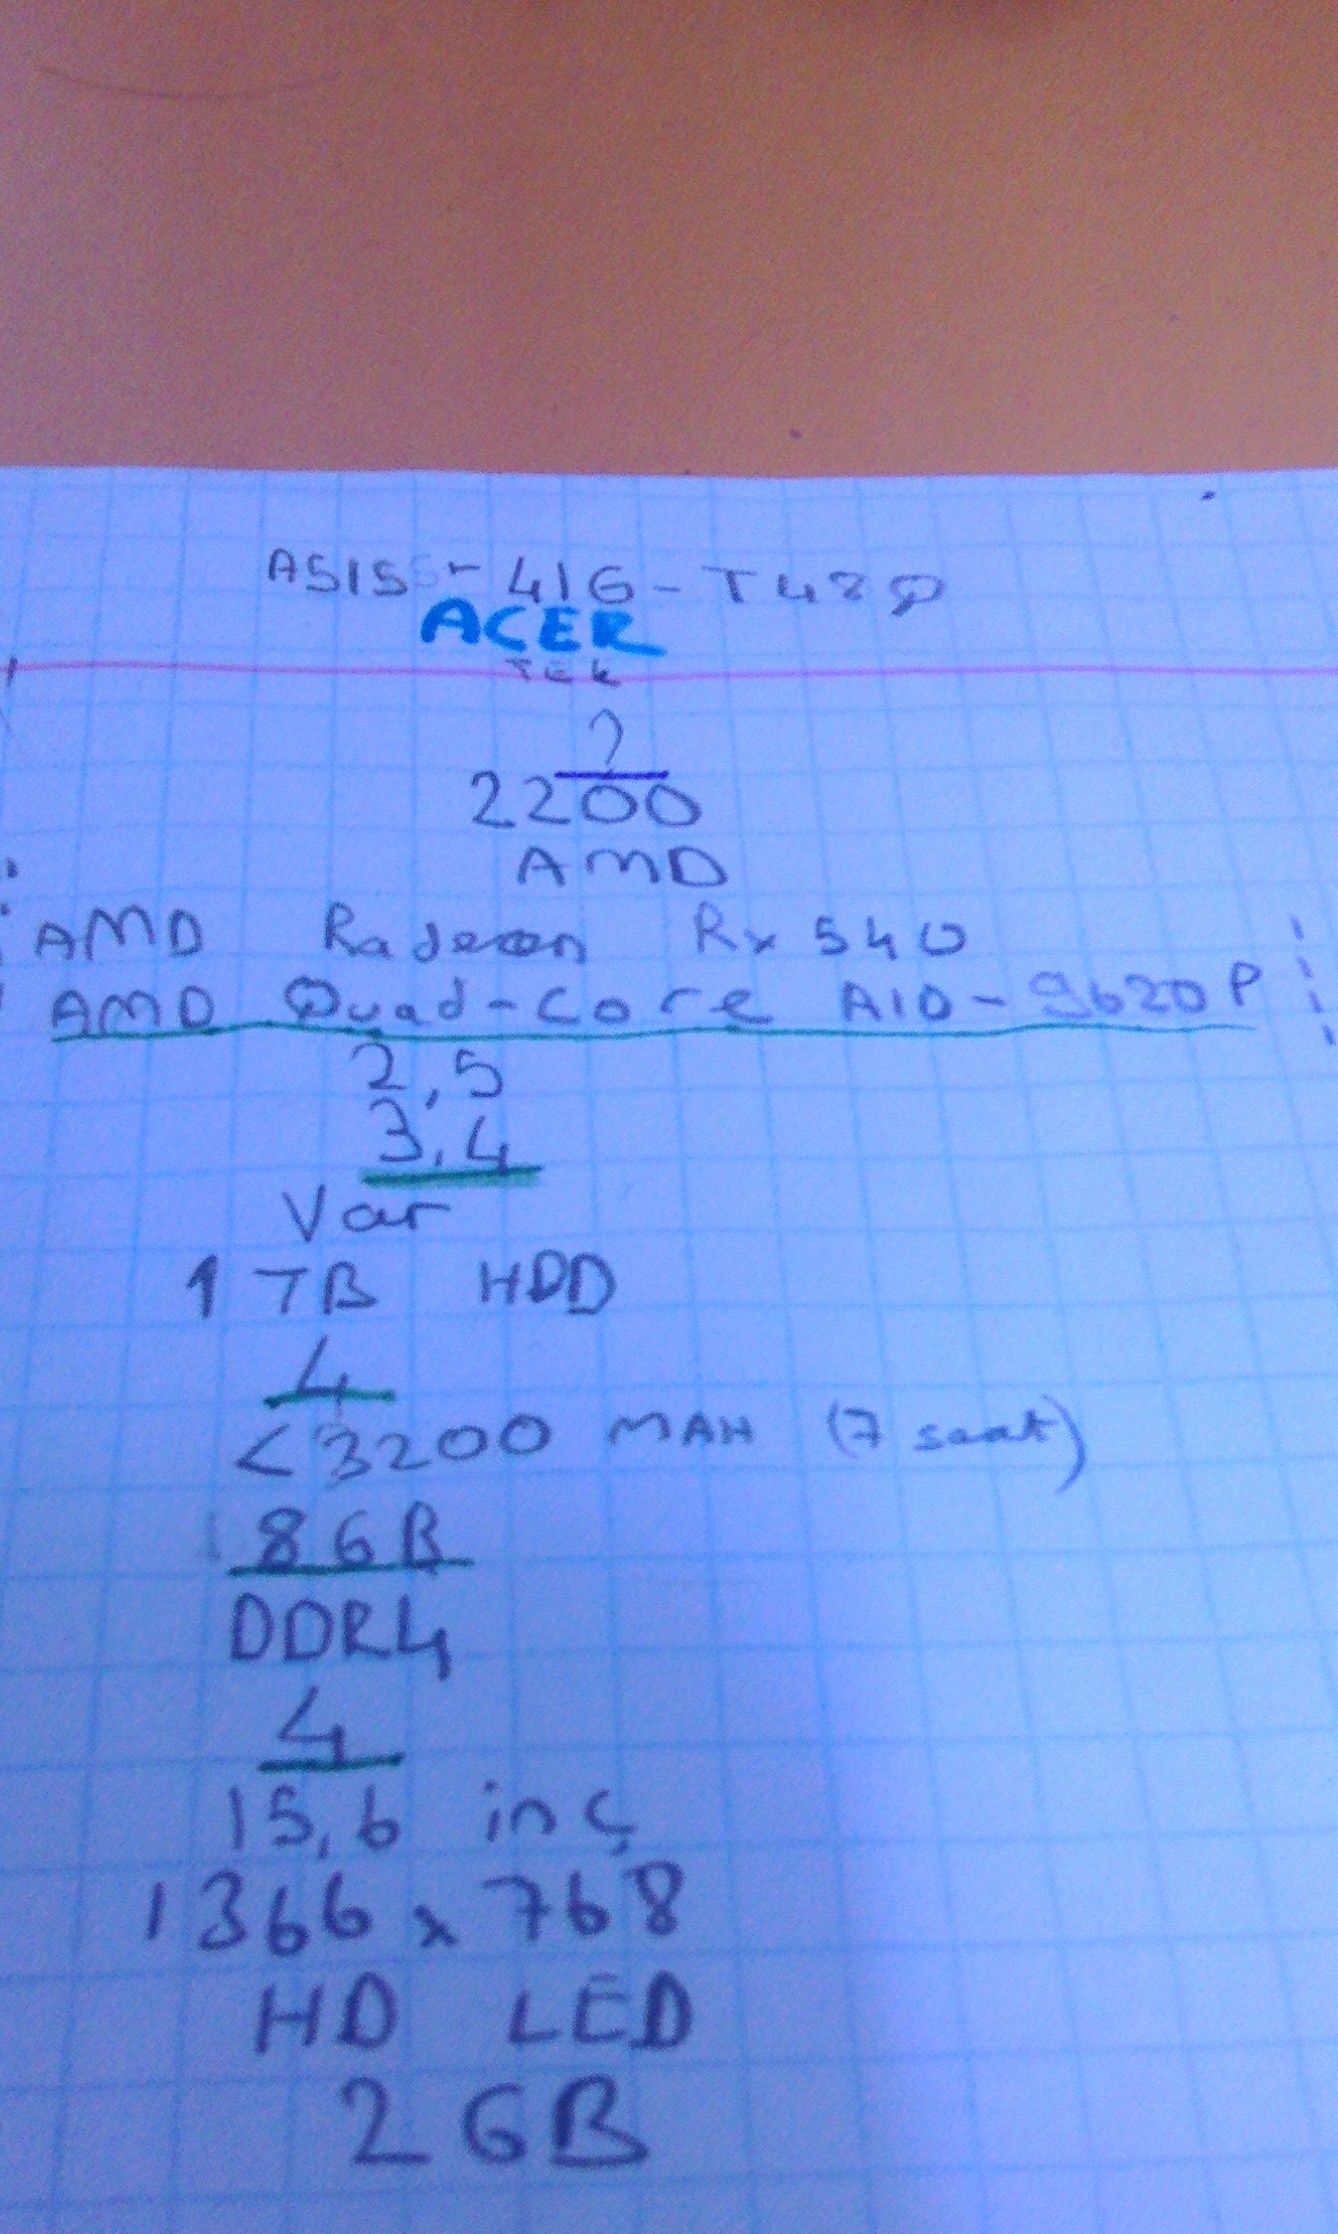 ASIS - 41G - T489
ACER
TEK
?
2200
AMD
AMD Radeon Rx 540
AMD Quad-Core A10-9620P
2,5
3,4
Var
1 TB HDD
4
<3200 MAH (7 saat)
8GB
DDR4
4
15,6 inç
1366 x 768
HD LED
2 GB